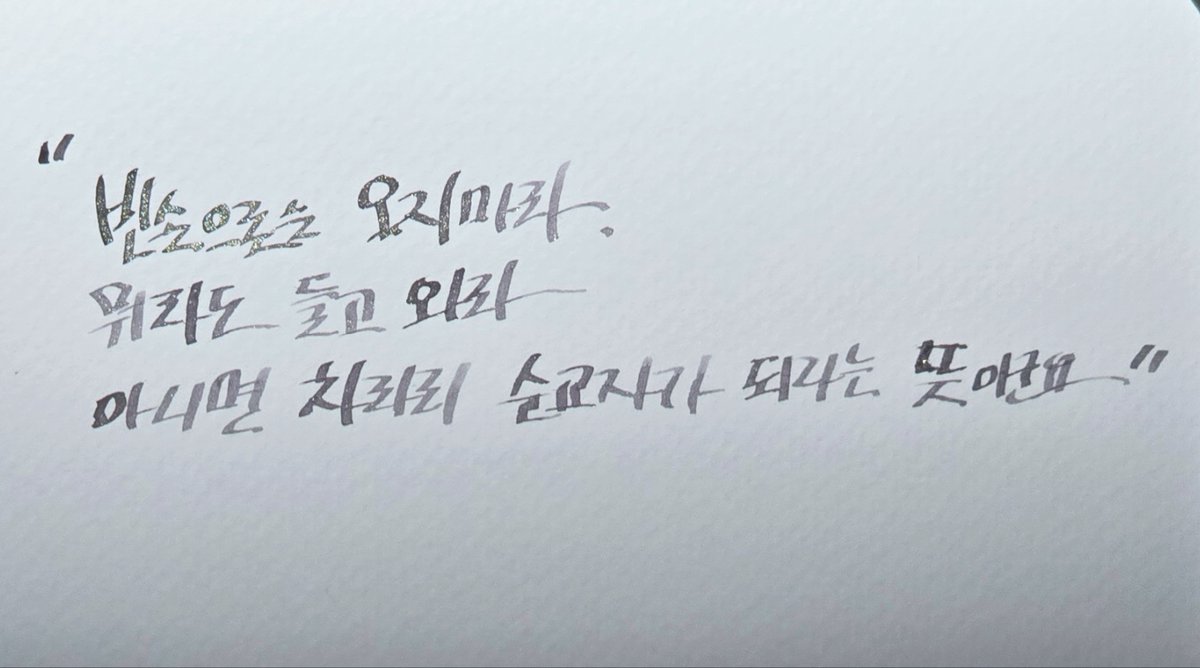 "빈손으로는 오지마라.
뭐라도 들고 와라
아니면 차라리 순교자가 되라는 뜻이군요"